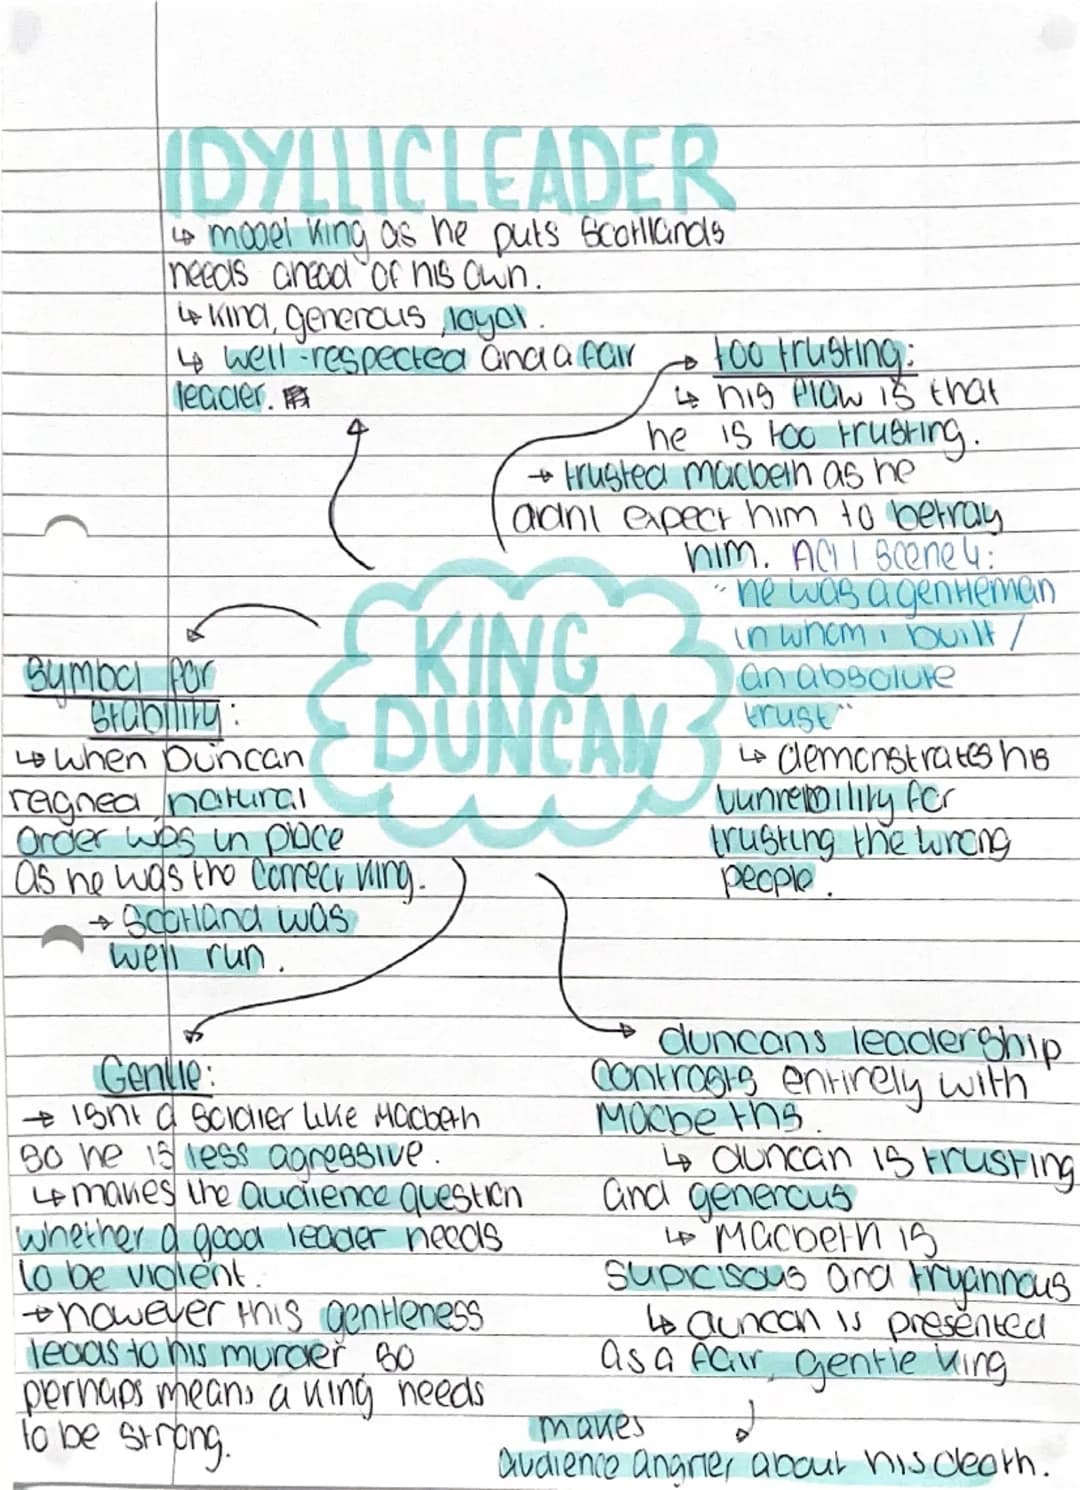 IDYLLIC LEADER
↳ model king as he puts Scotllands
needs ahead of his own.
↳ kind, generous, loyal.
↳ well-respected and a fair
leader.
too trusting:
↳ his flaw is that
he is too trusting.
→ trusted macbeth as he
didnt expect him to betray
him. Act 1 Scene 4:
"he was a gentleman
in whom i built /
an absolute
trust"
↳ demonstrates his
vunrebility for
trusting the wrong
people.
KING
DUNCAN
Symbol for
Stability:
↳ when Duncan
reigned natural
order was in place
as he was the correct king.
→ Scotland was
well run.
Gentle:
→ isnt a soldier like Macbeth
so he is less agressive.
↳ makes the audience question
whether a good leader needs
to be violent.
→ however this gentleness
leads to his murder so
perhaps means a king needs
to be strong.
duncans leadership
contrasts entirely with
Macbeths.
↳ duncan is trusting
and generous
↳ Macbeth is
supicisous and tryannous
↳ duncan is presented
as a fair, gentle king
makes
audience angrier about his death.